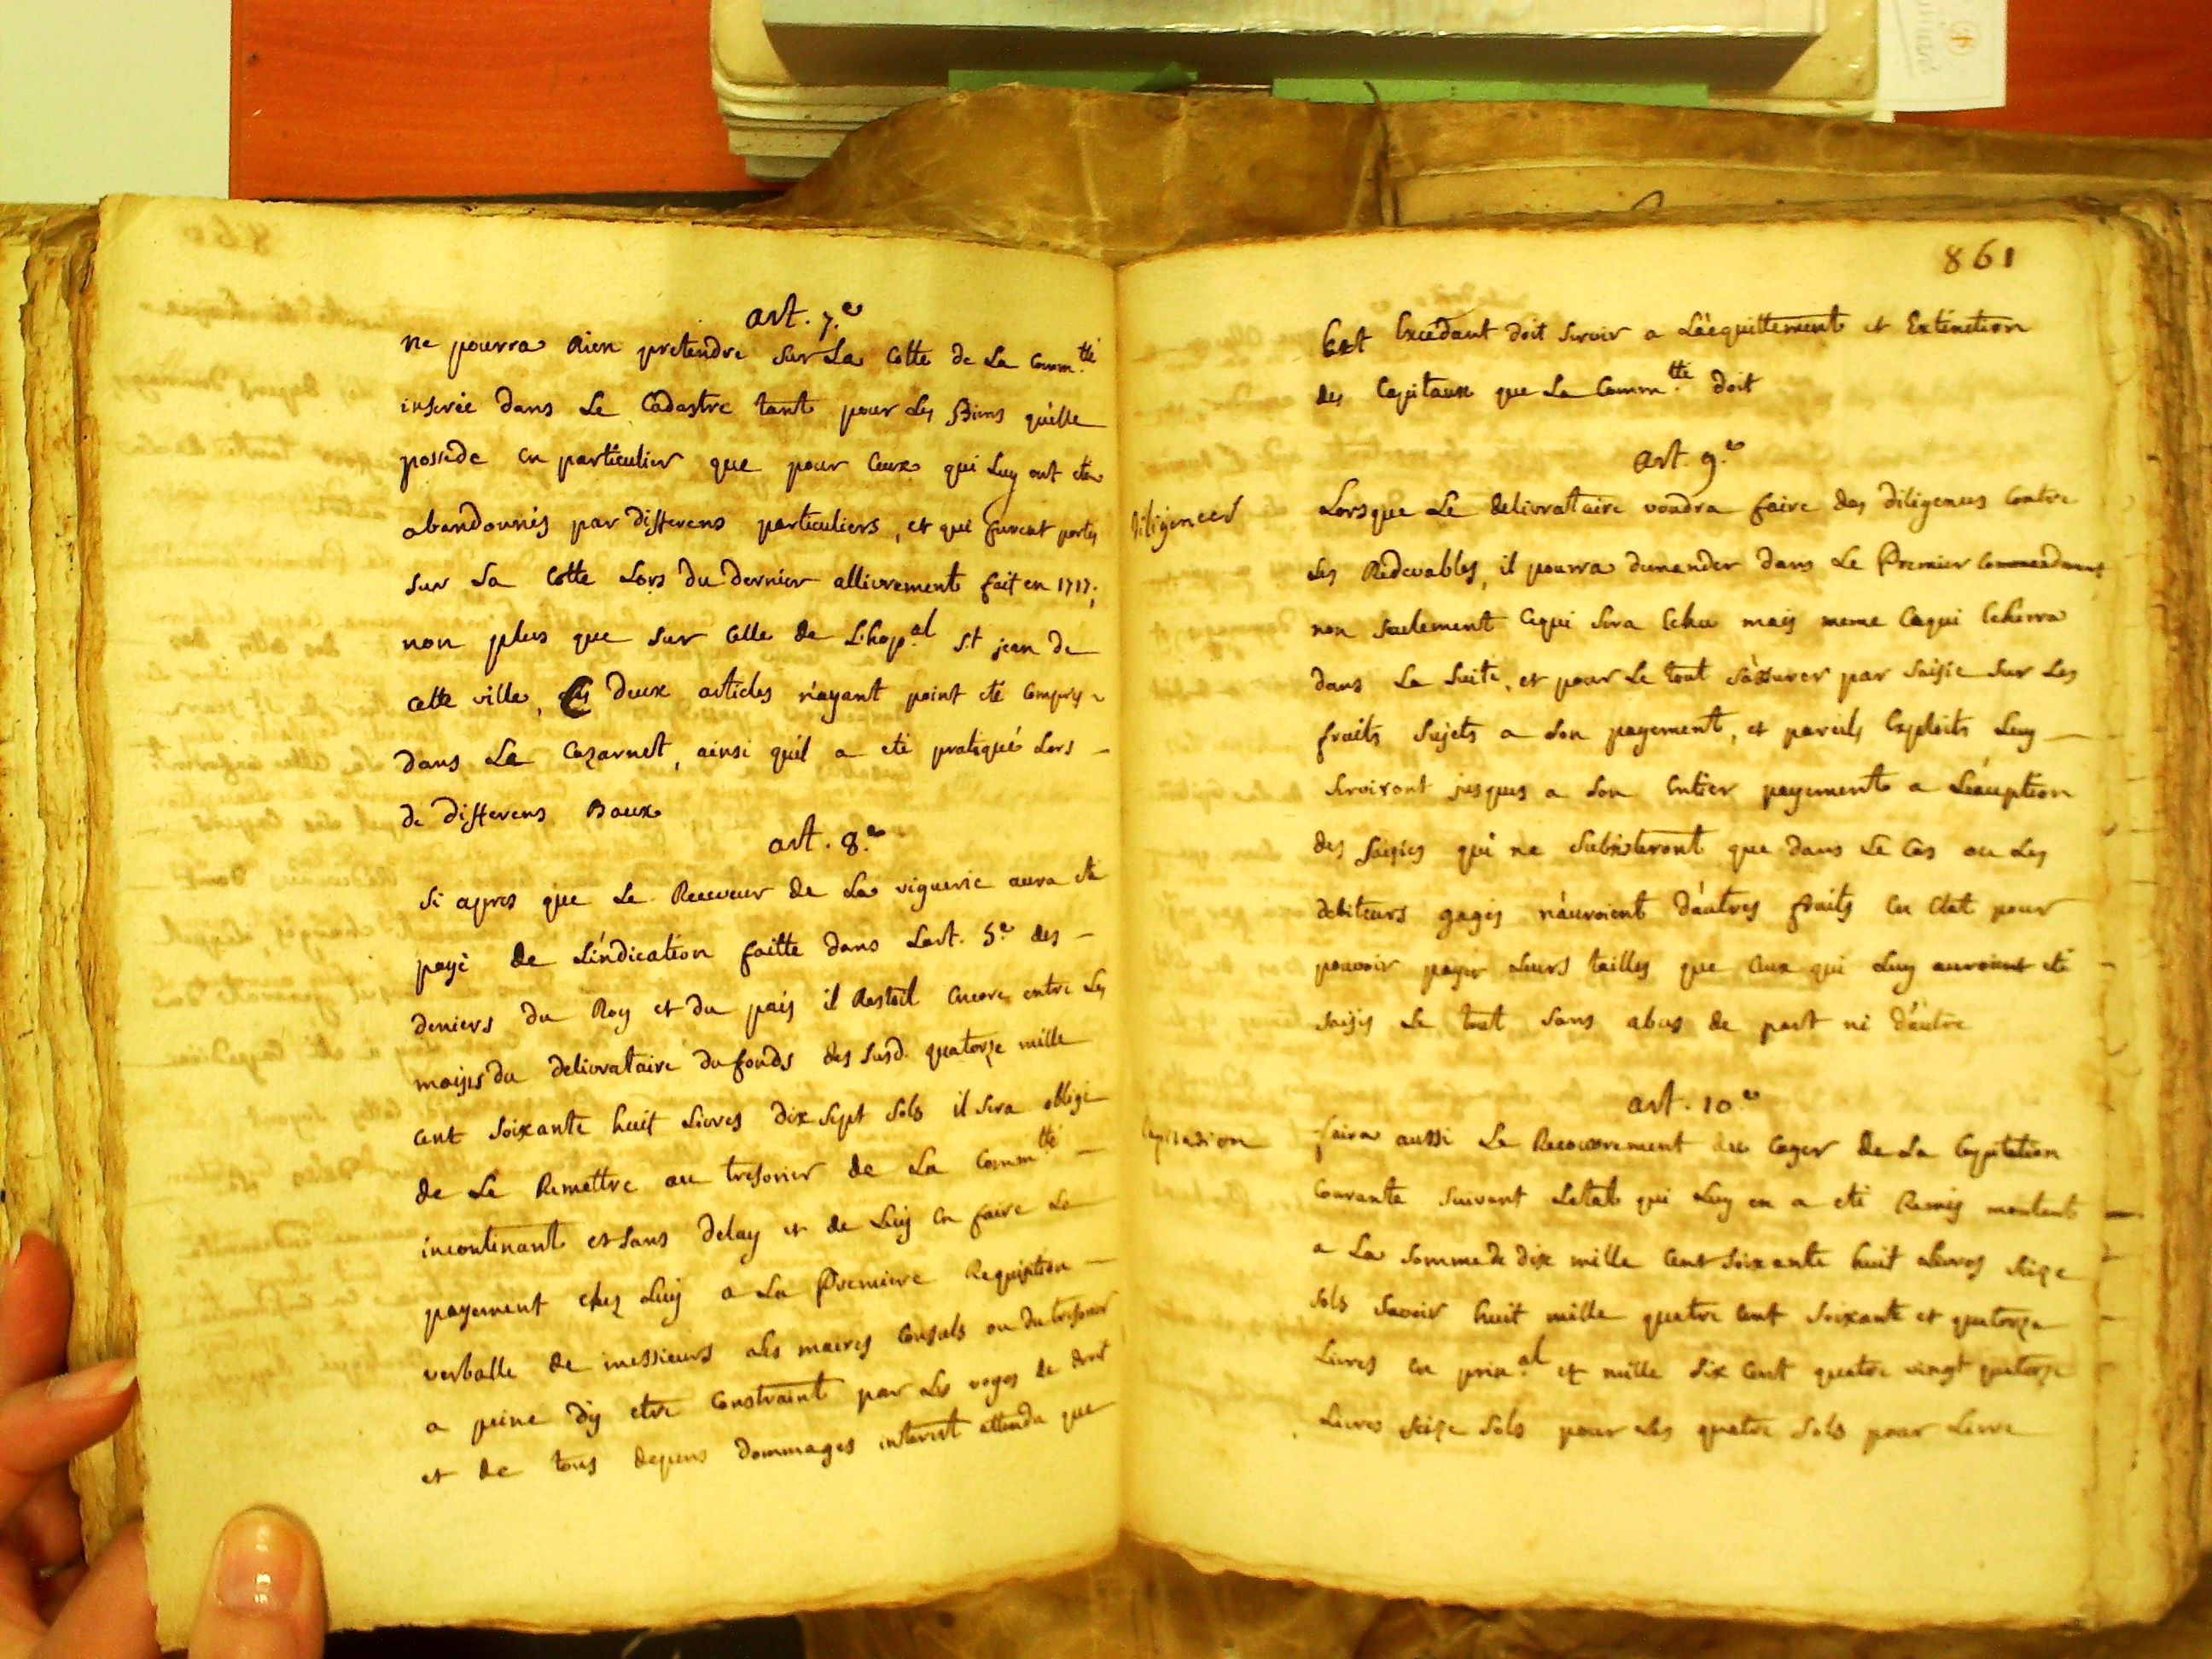 art. 7.e
ne pourra Rien pretendre sur La Cotte de La Comm.tté
inserée dans Le Cadastre tant pour Les Biens qu'elle
possede en particulier que pour Ceux qui Luy ont été
abandonnés par differens particuliers, et qui furent portés
sur sa Cotte Lors du dernier allivrement fait en 1717;
non plus que sur Celle de L'hop.al St jean de
cette ville, Ces deux articles n'ayant point eté Compris
dans Le Cazarnet, ainsi qu'il a eté pratiqué Lors
de differens Baux
art. 8.e
Si apres que Le Receveur de La viguerie aura été
payé de L'indication faitte dans L'art. 5.e des
deniers du Roy et du pais il Restoit encore entre Les
mains du delivrataire du fonds des susd. quatorze mille
Cent soixante huit Livres dix sept sols il sera obligé
de Le Remettre au tresorier de La Comm.tté
incontinant et sans delay et de Luy en faire Le
payement chez Luy a La Premiere Requisition
verballe de messieurs Les maires Consuls ou du tresorier
a peine d'y etre Constraint par Les voyes de droit
et de tous depens dommages interest attendu que
861
Cet Excédant doit servir a L'acquittement et Extinction
des Capitaux que La Comm.tté doit
art. 9.e
diligences
Lorsque Le delivrataire voudra faire des diligences Contre
Les Redevables, il pourra demander dans Le Premier Commandement
non seulement Cequi sera Echu mais meme Cequi Echerra
dans La suite, et pour Le tout s'assurer par saisie sur Les
fruits sujets a son payement, et pareils Exploits Luy
serviront jusques a son Entier payement a L'exeption
des saisies qui ne subsisteront que dans Le Cas ou Les
debiteurs gagés n'auroient d'autres fruits en Etat pour
pouvoir payer Leurs tailles que Ceux qui Luy auroient eté
saisis Le tout sans abus de part ni d'autre
art. 10.e
Capitation
faira aussi Le Recouvrement du Cayer de La Capitation
Courante suivant L'etat qui Luy en a eté Remis montant
a La somme de dix mille Cent soixante huit Livres seize
sols savoir huit mille quatre Cent soixante et quatorze
Livres en prin.al et mille six Cent quatre vingt quatorze
Livres seize sols pour Les quatre sols pour Livre